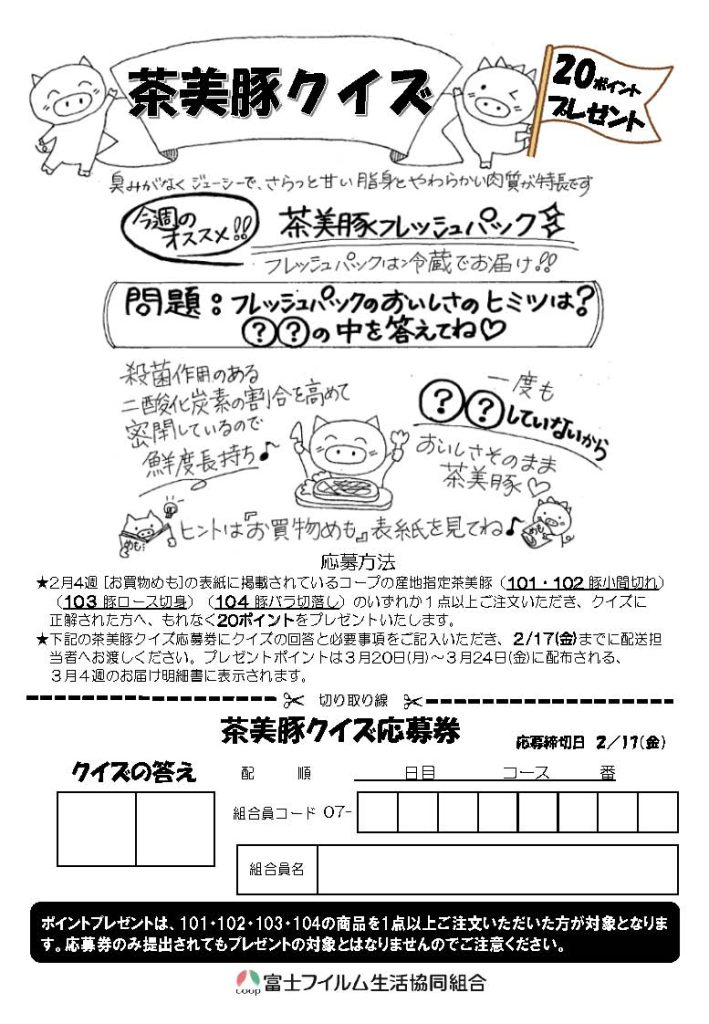 茶美豚クイズ
20ポイント
プレゼント
臭みがなくジューシーで、さらっと甘い脂身とやわらかい肉質が特長です
今週の
オススメ!!
茶美豚フレッシュパック☆
フレッシュパックは冷蔵でお届け!!
問題:フレッシュパックのおいしさのヒミツは?
??の中を答えてね♡
殺菌作用のある
二酸化炭素の割合を高めて
密閉しているので
鮮度長持ち♪
一度も
??していないから
おいしさそのまま
茶美豚♡
ヒントは『お買物めも』表紙を見てね♪
めも
めも
応募方法
★2月4週[お買物めも]の表紙に掲載されているコープの産地指定茶美豚(101・102豚小間切れ)
(103豚ロース切身)(104豚バラ切落し)のいずれか1点以上ご注文いただき、クイズに
正解された方へ、もれなく20ポイントをプレゼントいたします。
★下記の茶美豚クイズ応募券にクイズの回答と必要事項をご記入いただき、2/17(金)までに配送担
当者へお渡しください。プレゼントポイントは3月20日(月)~3月24日(金)に配布される、
3月4週のお届け明細書に表示されます。
切り取り線
茶美豚クイズ応募券
応募締切日 2/17(金)
クイズの答え
配 順 日目 コース 番
組合員コード 07-
組合員名
ポイントプレゼントは、101・102・103・104の商品を1点以上ご注文いただいた方が対象となりま
す。応募券のみ提出されてもプレゼントの対象とはなりませんのでご注意ください。
coop 富士フイルム生活協同組合